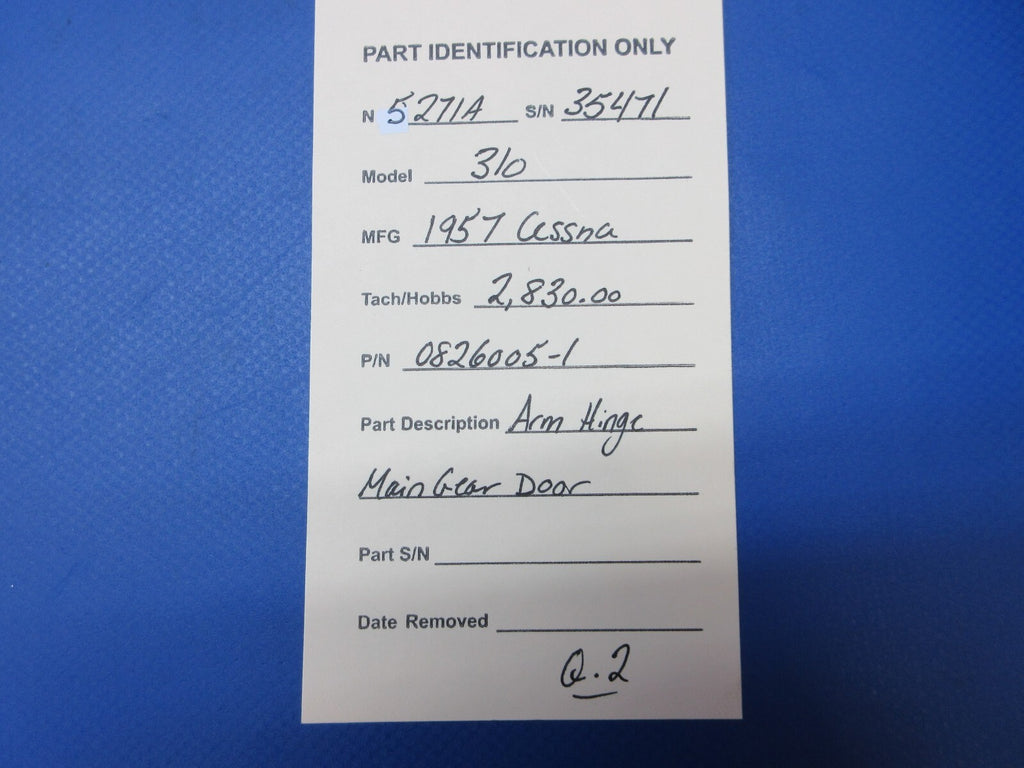 PART IDENTIFICATION ONLY
N 5271A S/N 35471
Model 310
MFG 1957 Cessna
Tach/Hobbs 2,830.00
P/N 0826005-1
Part Description Arm Hinge
Main Gear Door
Part S/N
Date Removed
Q.2